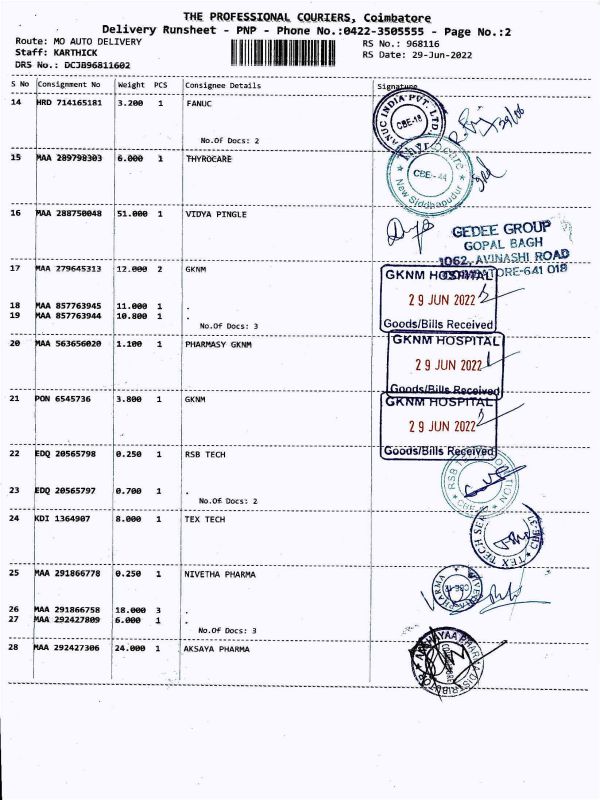 THE PROFESSIONAL COURIERS, Coimbatore
Delivery Runsheet - PNP - Phone No.:0422-3505555 - Page No.:2
Route: MO AUTO DELIVERY RS No.: 968116
Staff: KARTHICK RS Date: 29-Jun-2022
DRS No.: DCJB96811602
S No Consignment No Weight PCS Consignee Details Signature
14 HRD 714165181 3.200 1 FANUC
FANUC INDIA PVT. LTD. CBE-18
No.Of Docs: 2
15 MAA 289798303 6.000 1 THYROCARE
Thyrocare CBE-44 New Siddhapudur
16 MAA 288750048 51.000 1 VIDYA PINGLE
GEDEE GROUP
GOPAL BAGH
1062, AVINASHI ROAD
COIMBATORE-641 018
17 MAA 279645313 12.000 2 GKNM
GKNM HOSPITAL
29 JUN 2022
Goods/Bills Received
18 MAA 857763945 11.000 1 .
19 MAA 857763944 10.800 1 .
No.Of Docs: 3
20 MAA 563656020 1.100 1 PHARMASY GKNM
GKNM HOSPITAL
29 JUN 2022
Goods/Bills Received
21 PON 6545736 3.800 1 GKNM
GKNM HOSPITAL
29 JUN 2022
Goods/Bills Received
22 EDQ 20565798 0.250 1 RSB TECH
23 EDQ 20565797 0.700 1 .
No.Of Docs: 2
24 KDI 1364907 8.000 1 TEX TECH
25 MAA 291866778 0.250 1 NIVETHA PHARMA
26 MAA 291866758 18.000 3 .
27 MAA 292427809 6.000 1 .
No.Of Docs: 3
28 MAA 292427306 24.000 1 AKSAYA PHARMA